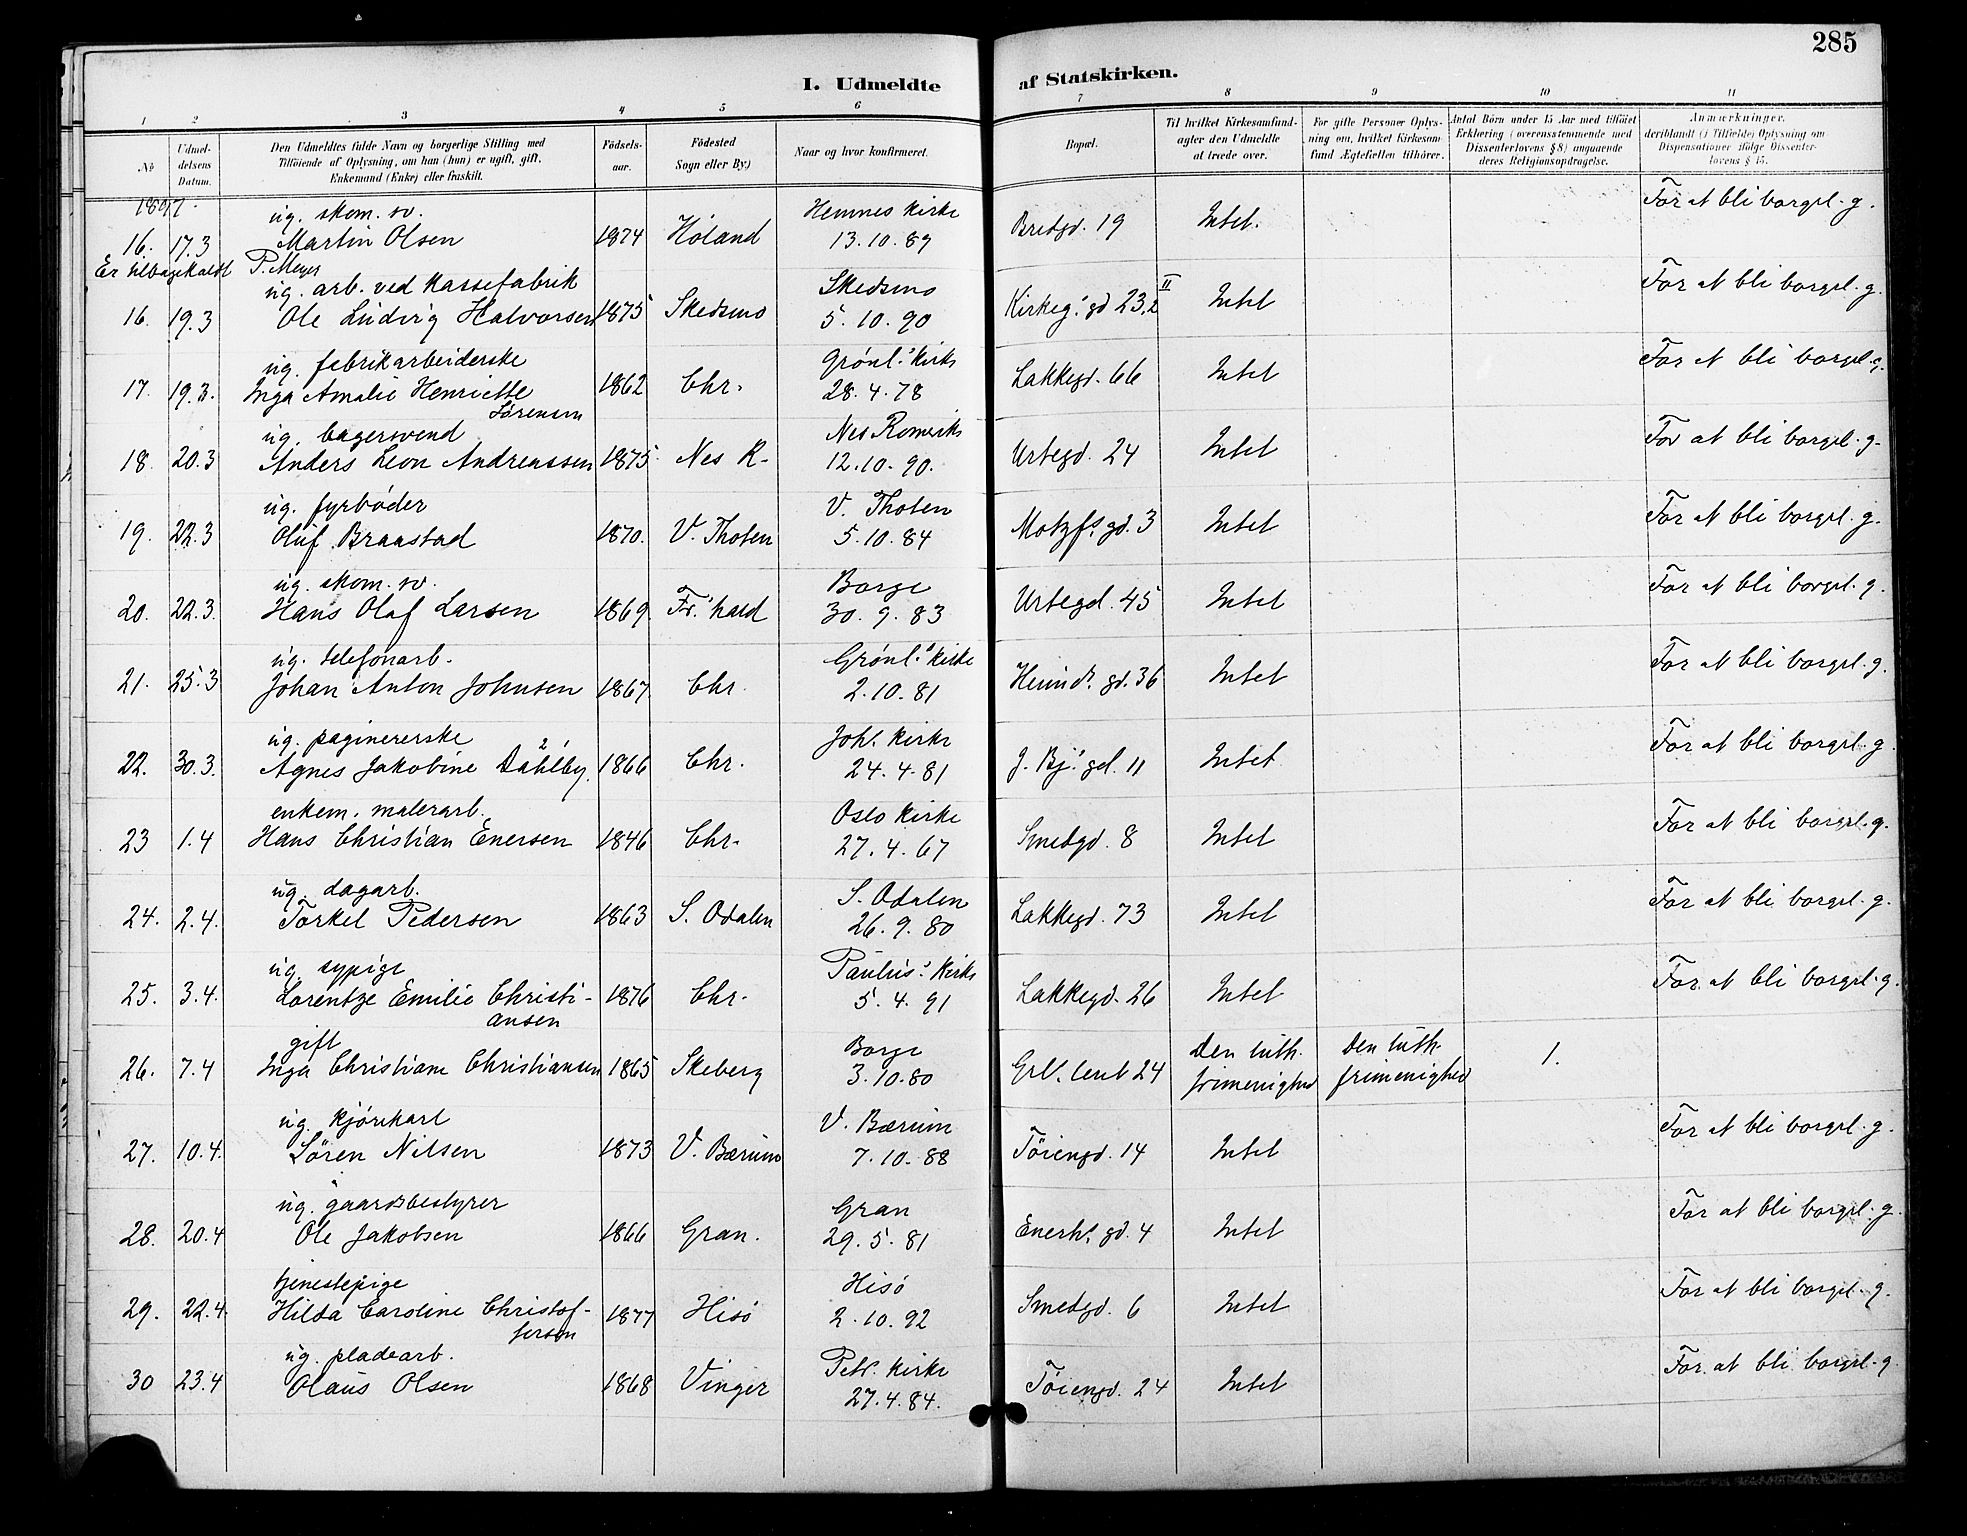 285
I. Udmeldte af Statskirken.
1 2 3 4 5 6 7 8 9 10 11
No
Udmeldelsens Datum.
Den Udmeldtes fulde Navn og borgerlige Stilling med
Tilföiende af Oplysning, om han (hun) er ugift, gift,
Enkemand (Enke) eller fraskilt.
Födsels-
aar.
Födested
Sogn eller By.)
Naar og hvor konfirmeret.
Bopæl.
Til hvilket Kirkesamfund
agter den Udmeldte
at træde over.
For gifte Personer Oplys-
ning om, hvilket Kirkesam-
fund Ægtefællen tilhörer.
Antal Börn under 15 Aar med tilföiet
Erklæring (overensstemmende med
Dissenterlovens § 8) angaaende
deres Religionsopdragelse.
Anmærkninger,
deriblandt (i Tilfælde) Oplysning om
Dispensationer ifölge Dissenter-
lovens § 15.
1897.
ug. skom. sv. Hemnes kirke For at bli borgrl. g.
16. 17.3 Martin Olsen 1874 Höland 13.10.89 Bredgd. 19 Intet.
Er tilbagekaldt P. Meyer
ug. arb. ved kassefabrik Skedsmo For at bli borgrl. g.
16. 19.3 Ole Ludvig Halvorsen 1875 Skedsmo 5.10.90 Kirkeg.' gd 23,2 II Intet
ug. fabrikarbeiderske Grönl.' kirke For at bli borgrl. g.
17. 19.3. Inga Amalie Henriette 1862 Chr. 28.4.78 Lakkegd. 66 Intet
Sörensen
ug. bagersvend Nes Romerike For at bli borgrl. g.
18. 20.3 Anders Leon Andreassen 1875 Nes R. 12.10.90. Urtegd. 24 Intet
ug. fyrböder V. Thoten For at bli borgrl. g.
19. 22.3 Oluf Braastad 1870. V. Thoten 5.10.84 Motzfs gd. 3 Intet
ug. skom. sv. Borge For at bli borgrl. g.
20. 22.3. Hans Olaf Larsen 1869. Fr.'hald 30.9.83 Urtegd. 45 Intet
ug. telefonarb. Grönl.' kirke For at bli borgrl. g.
21. 25.3 Johan Anton Johnsen 1867. Chr. 2.10.81 Heimd. gd. 36 Intet
ug. paginererske Joh. kirke For at bli borgrl. g.
22. 30.3. Agnes Jakobine Dahlby. 1866 Chr. 24.4.81 J. Bj.' gd. 11 Intet
enkem. malerarb. Oslo kirke For at bli borgrl. g.
23 1.4 Hans Christian Enersen 1846 Chr. 27.4.67 Smedgd. 8 Intet
ug. dagarb. S. Odalen For at bli borgrl. g.
24. 2.4. Torkel Pedersen 1863 S. Odalen 26.9.80 Lakkegd. 73 Intet
ug. sypige Paulus' kirke For at bli borgrl. g.
25. 3.4. Lorentze Emilie Christi- 1876 Chr. 5.4.91 Lakkegd. 26 Intet
ansen
gift Borge den luth. Den luth.
26. 7.4 Inga Christiane Christiansen 1865 Skeberg 3.10.80 Grl. Lent 24 frimenighed frimenighed 1.
ug. kjörekarl V. Bærum For at bli borgrl. g.
27. 10.4. Sören Nilsen 1873 V. Bærum 7.10.88 Töiengd. 14 Intet
ug. gaardsbestyrer Gran For at bli borgrl. g.
28. 20.4 Ole Jakobsen 1866 Gran. 29.5.81 Enerh. gd. 4 Intet
tjenestepige Hisö For at bli borgrl. g.
29. 22.4. Hilda Caroline Christof- 1877 Hisö 2.10.92 Smedgd. 6 Intet
fersen
ug. pladearb. Petr. kirke For at bli borgrl. g.
30 23.4 Olaus Olsen 1868 Vinger 27.4.84. Töiengd. 24 Intet